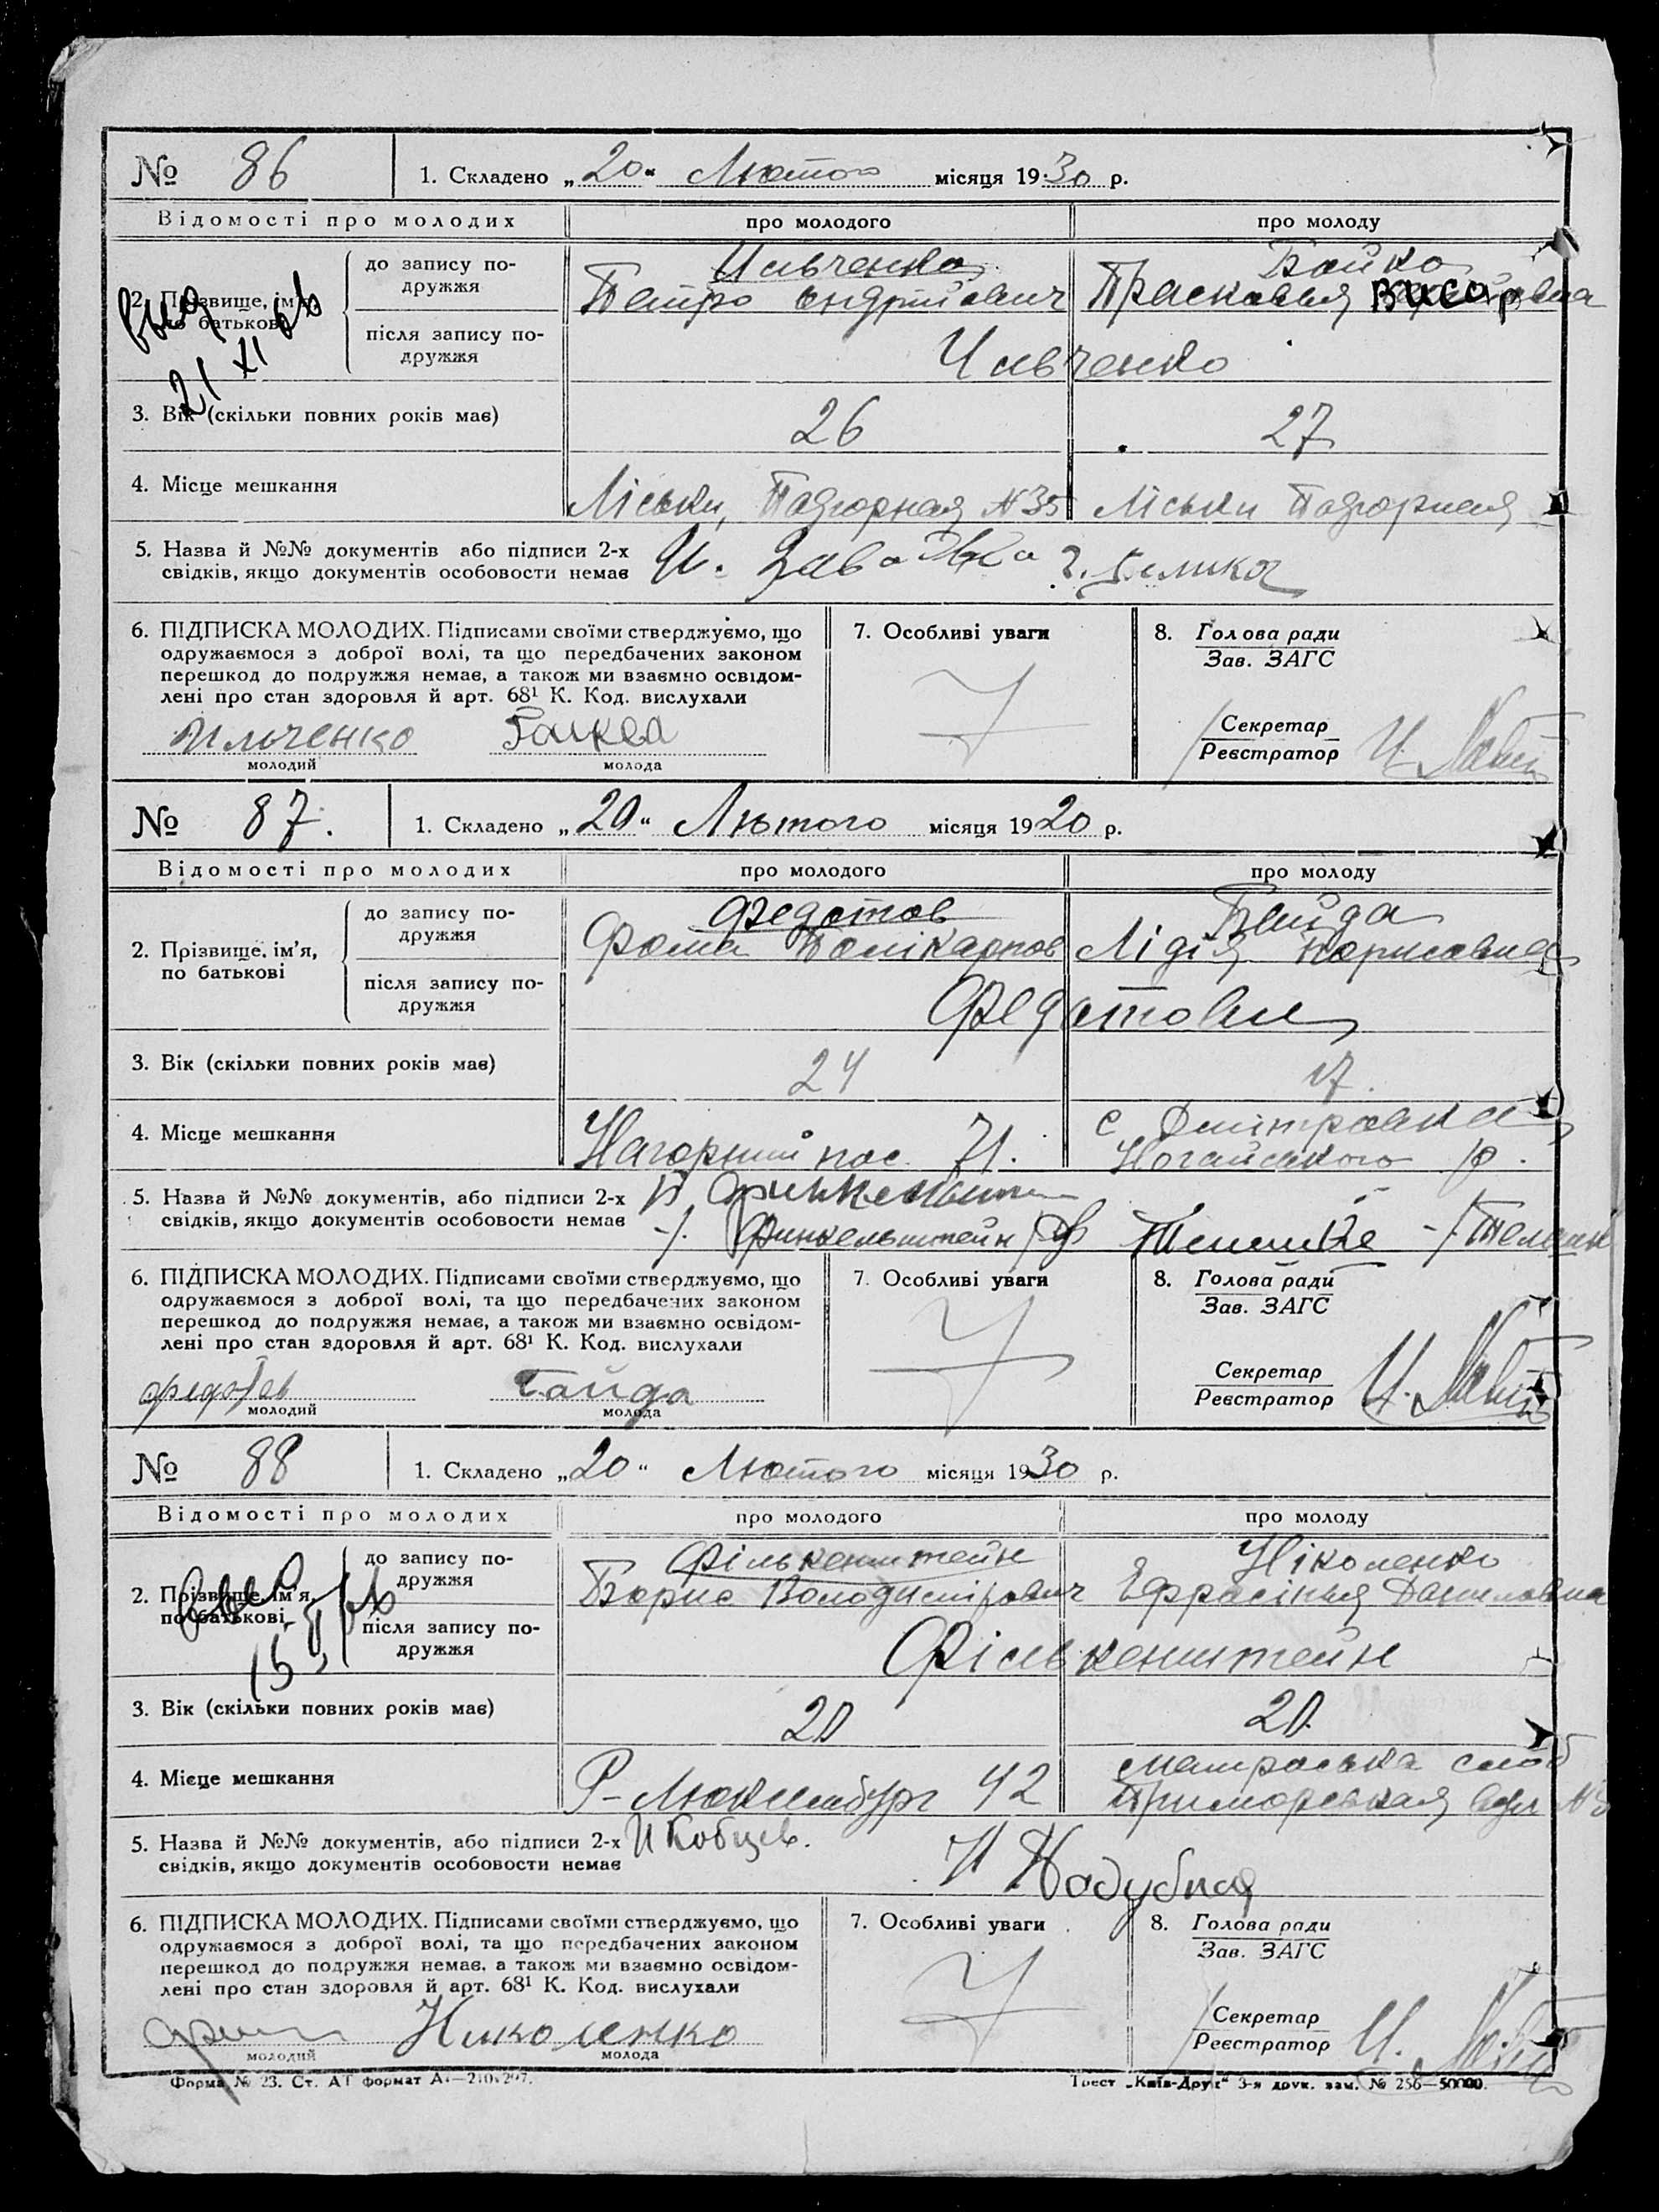 № 86 1. Складено „20“ Лютого місяця 1930 р.
Відомості про молодих про молодого про молоду
2. Прізвище, ім'я, по батькові
до запису подружжя
Ильченко
Петро Андрійович
Бойко
Прасковья
після запису подружжя
Ильченко
21 XI
3. Вік (скільки повних років має) 26 27
4. Місце мешкання Ліськи, Подгорная N 35 Ліськи Подгорная
5. Назва й №№ документів або підписи 2-х
свідків, якщо документів особовости немає
6. ПІДПИСКА МОЛОДИХ. Підписами своїми стверджуємо, що
одружаємося з доброї волі, та що передбачених законом
перешкод до подружжя немає, а також ми взаємно освідом-
лені про стан здоровля й арт. 68¹ К. Код. вислухали
Ильченко
молодий молода
7. Особливі уваги
8. Голова ради
Зав. ЗАГС
Секретар
Реєстратор
№ 87. 1. Складено „20“ Лютого місяця 1920 р.
Відомості про молодих про молодого про молоду
2. Прізвище, ім'я,
по батькові
до запису по-
дружжя
Федотов
Фома Полікарпов
Гайда
Лідія
після запису по-
дружжя
Федотови
3. Вік (скільки повних років має) 24 17.
4. Місце мешкання Нагорний пос. 71. с Дмітровка
Ногайського р.
5. Назва й №№ документів, або підписи 2-х
свідків, якщо документів особовости немає
Финкельштейн
6. ПІДПИСКА МОЛОДИХ. Підписами своїми стверджуємо, що
одружаємося з доброї волі, та що передбачених законом
перешкод до подружжя немає, а також ми взаємно освідом-
лені про стан здоровля й арт. 68¹ К. Код. вислухали
Федотов Гайда
молодий молода
7. Особливі уваги
8. Голова ради
Зав. ЗАГС
Секретар
Реєстратор
№ 88 1. Складено „20“ Лютого місяця 1930 р.
Відомості про молодих про молодого про молоду
2. Прізвище, ім'я,
по батькові
до запису по-
дружжя
Фількенштейн
Борис Володимірович
Ніколенко
Ефрасінья Даниловна
після запису по-
дружжя
Фількенштейн
15
3. Вік (скільки повних років має) 20 20.
4. Місце мешкання Р-Люксембург 42 Матроська слоб
Приморская
5. Назва й №№ документів, або підписи 2-х
свідків, якщо документів особовости немає
И Кобцев.
6. ПІДПИСКА МОЛОДИХ. Підписами своїми стверджуємо, що
одружаємося з доброї волі, та що передбачених законом
перешкод до подружжя немає, а також ми взаємно освідом-
лені про стан здоровля й арт. 68¹ К. Код. вислухали
Николенко
молодий молода
7. Особливі уваги
8. Голова ради
Зав. ЗАГС
Секретар
Реєстратор
Форма № 23. Ст. АТ формат А4—210×297.
Трест „Київ-Друк“ 3-я друк. зам. № 256—50000.